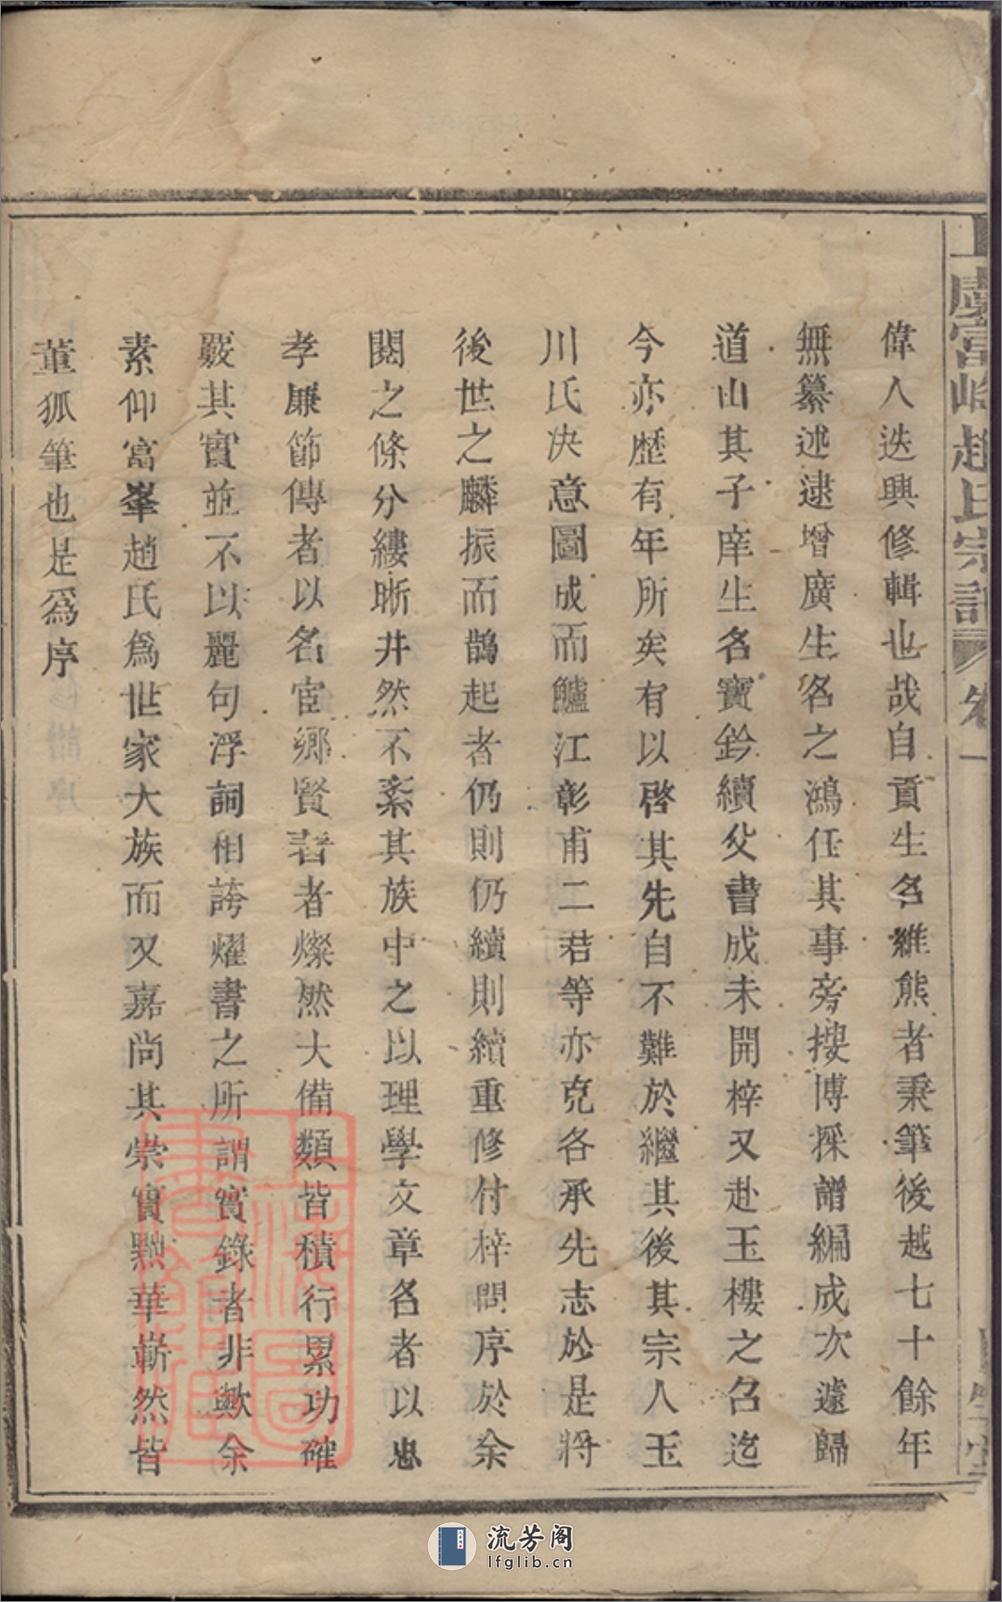 偉人迭興修輯也哉自貢生名維熊者秉筆後越七十餘年
無纂述逮增廣生名之鴻任其事旁搜博採譜編成次遽歸
道山其子庠生名寶鈐續父書成未開梓又赴玉樓之召迄
今亦歷有年所矣有以啓其先自不難於繼其後其宗人玉
川氏決意圖成而鱸江彰甫二君等亦克各承先志於是將
後世之麟振而鵲起者仍則仍續則續重修付梓問序於余
閱之條分縷晰井然不紊其族中之以理學文章名者以忠
孝廉節傳者以名宦鄉賢著者燦然大備類皆積行累功確
覈其實並不以麗句浮詞相誇燿書之所謂實錄者非歟余
素仰富峯趙氏爲世家大族而又嘉尚其崇實黜華嶄然皆
董狐筆也是爲序
富峰趙氏宗譜 卷一
上海圖書館藏
流芳阁
lfglib.cn